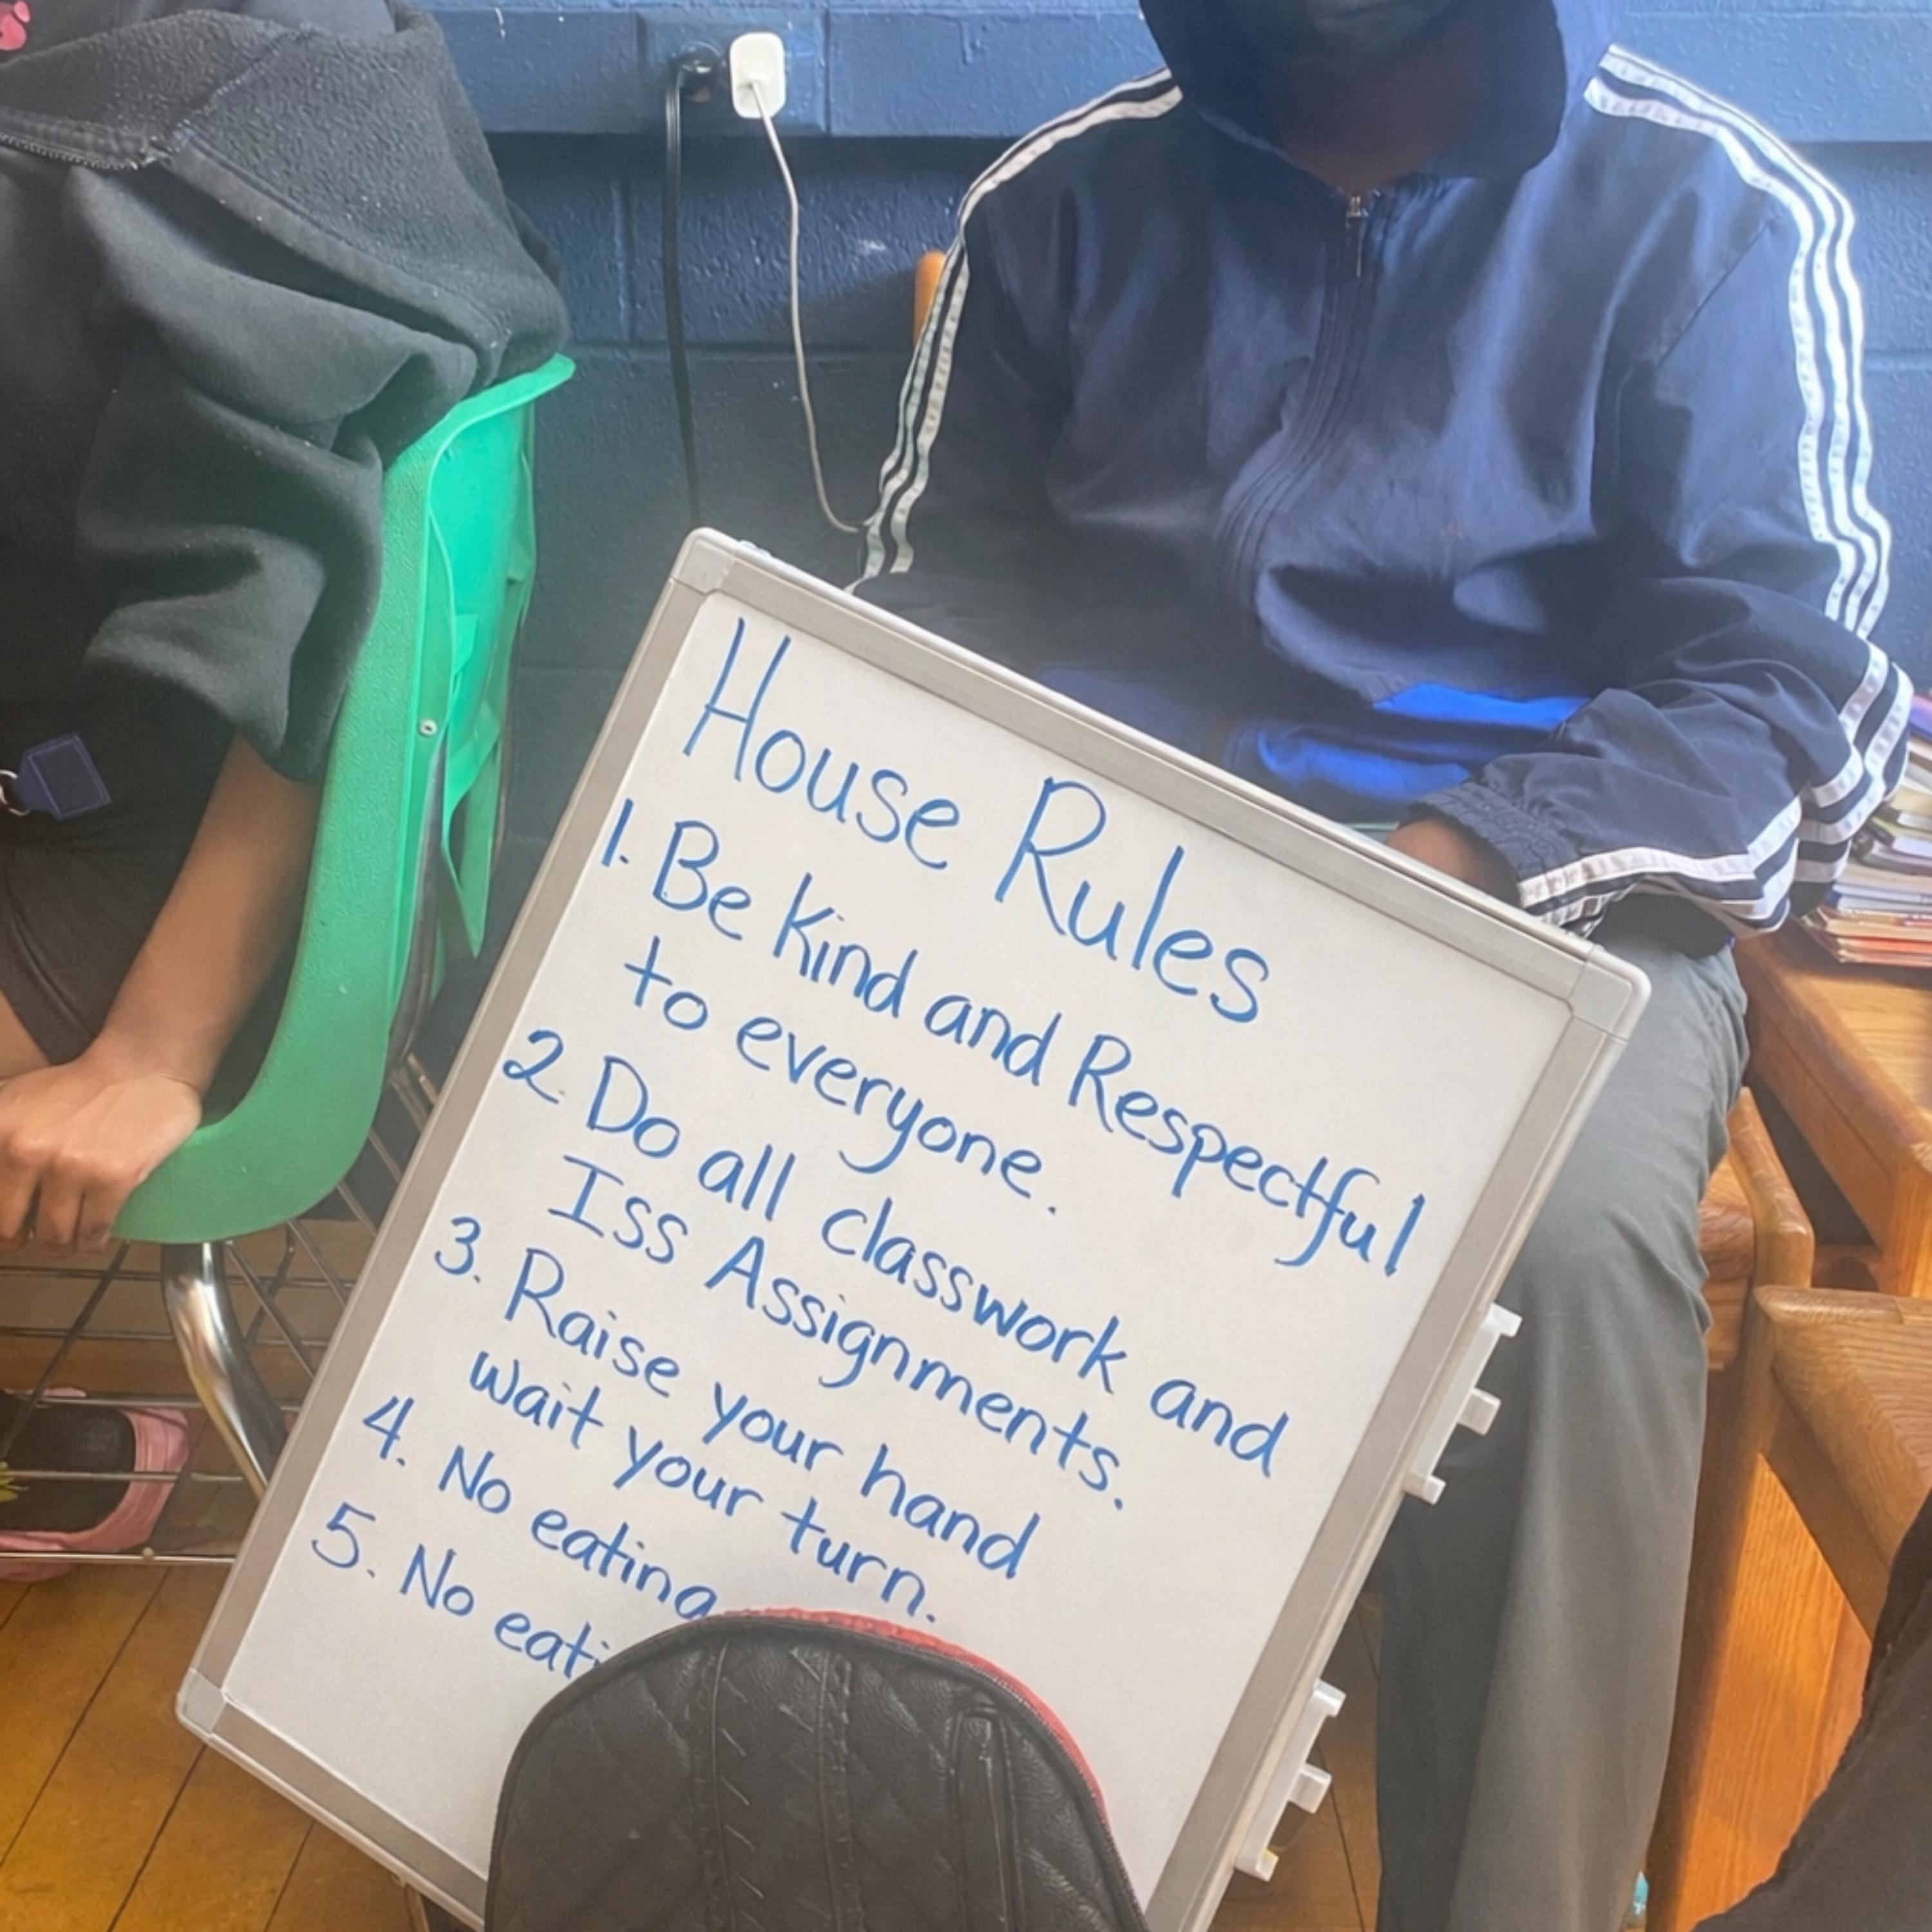 House Rules
1. Be Kind and Respectful
to everyone.
2. Do all classwork and
Iss Assignments.
3. Raise your hand
wait your turn.
4. No eating
5. No